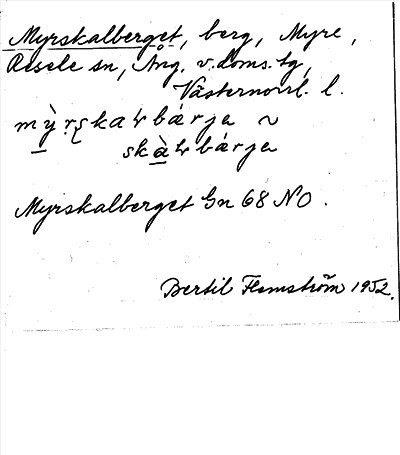 Myrskalberget, berg, Myre,
Resele sn, Ång. v. doms. tg,
Västernorrl. l.
mỳrskaƚbárja ~
skàƚbárja
Myrskalberget Gn 68 NO.
Bertil Flemström 1952.